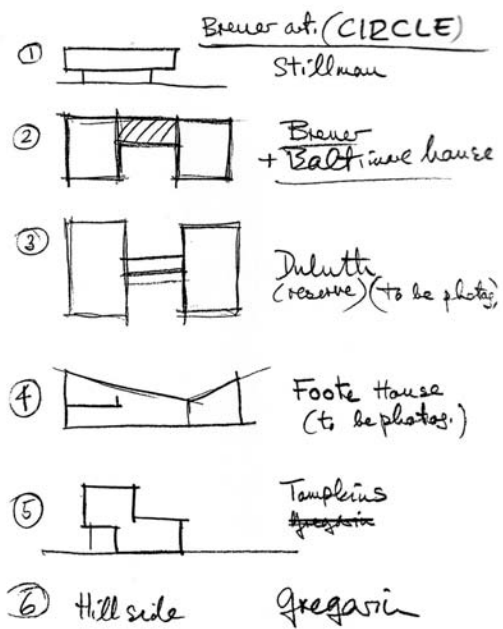 Breuer art. (CIRCLE)
① Stillman
② Breuer
+ Baltimore house
③ Duluth
(reserve) (to be photog.)
④ Foote House
(to be photog.)
⑤ Tompkins
Gregorin
⑥ Hillside Gregorin